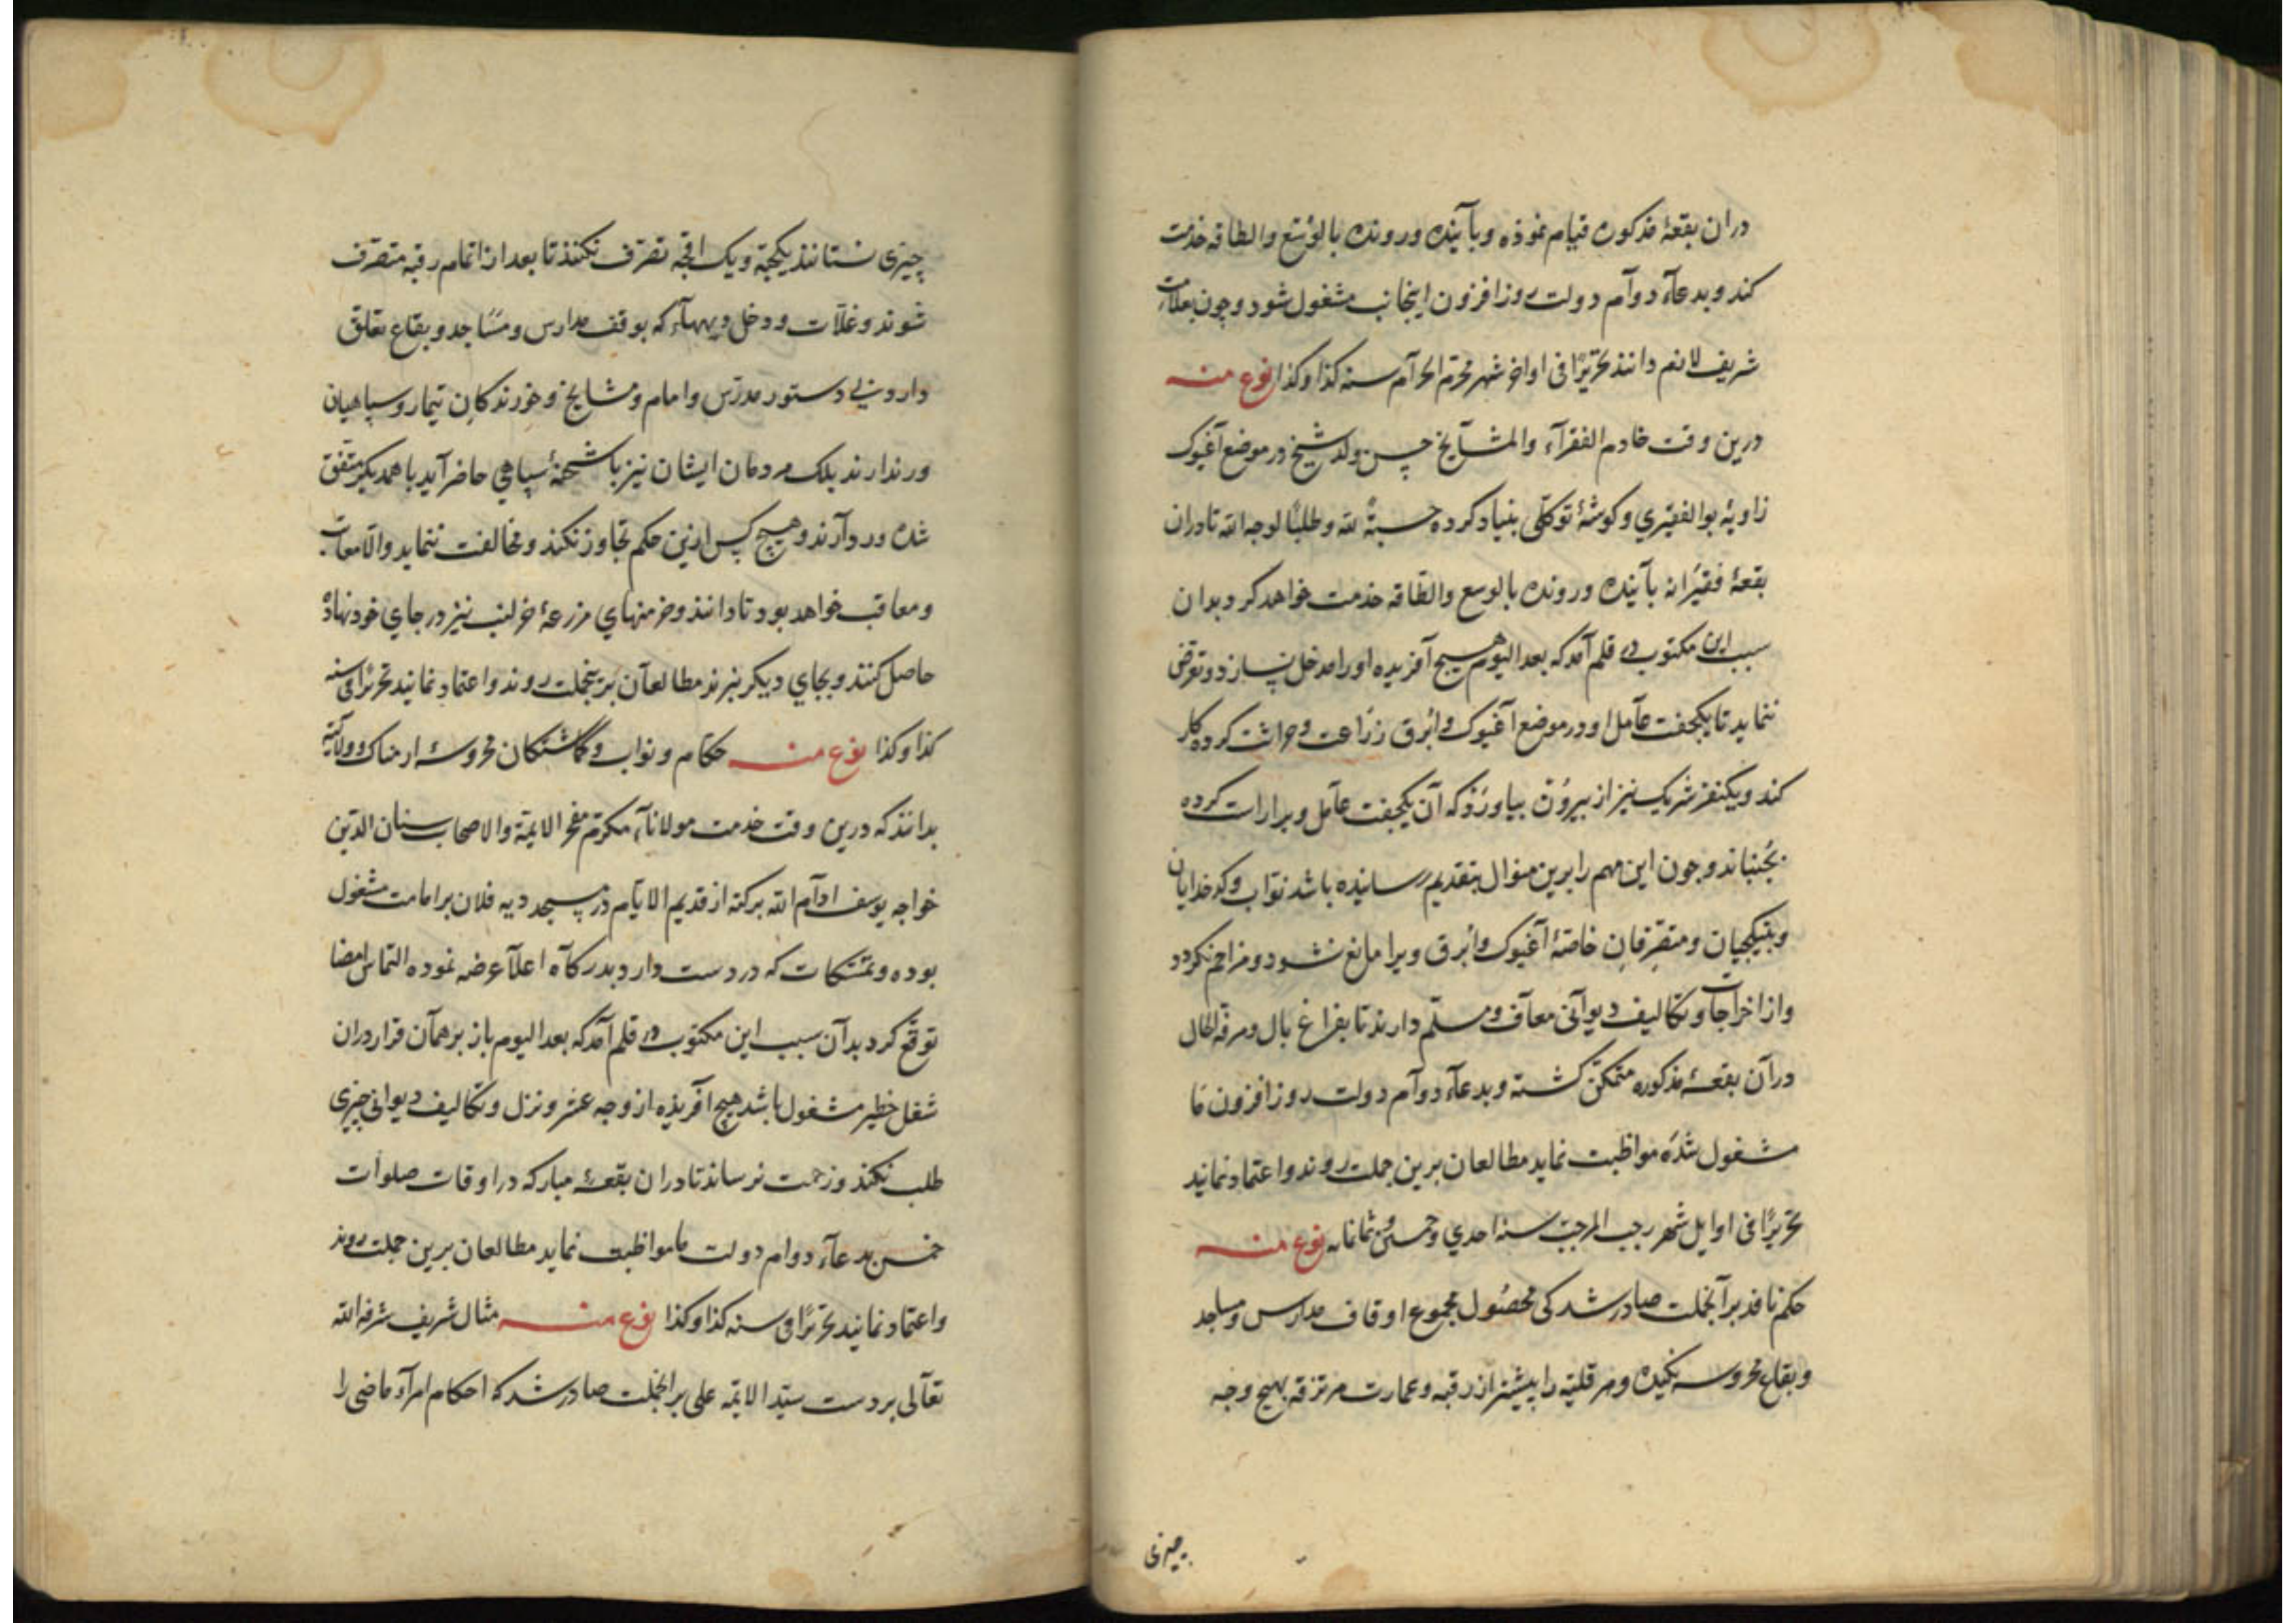 دران بقعهٔ مذکوره قیام نموذه وبآینده ورونده بالوُسْع والطاقه خدمت
کند وبدعآء دوآم دولت روزافزون اینجانب مشغول شود وچون بعلامت
شریف لانم دانند تحریرًا فی اواخر شهر محرّم الحرآم سنه کذا وکذا نوع منه
درین وقت خادم الفقرآء والمشآیخ حسن ولد شیخ در موضع آغیوک
زاویهٔ بوالفقیري وکوشهٔ توکلّی بنیاد کرده حسبةً لله وطلبًا لوجه الله تادران
بقعهٔ فقیرانه بآینده ورونده بالوسع والطاقه خذمت خواهد کرد بدان
سبب این مکتوب در قلم آمد که بعد الیوم هیچ آفریده اورا مدخل نسازد وتعرّض
ننماید تا یکجفت عآمل او در موضع آغیوک وابرق زرَاعت وحراثت کرده کار
کند ویکنفر شریک نیز از بیرُون بیاورَذ که آن یکجفت عآمل ویرا رات کرده
بجُنباند وچون این مهم را برین منوال بتقدیم رسانیده باشد نوّاب وکدخدایان
وینیکچیان ومتصّرفان خاصّهٔ آغیوک وابرق ویرا مانع نشود ومزاحم نکردد
واز اخراجات وتکالیف دیوآنی معآف ومسلّم دارند تا بفراغ بال ومرفه الحال
درآن بقعهٔ مذکوره متمکّن کشته وبدعآء دوآم دولت روزافزون ما
مشغول شُدَه مواظبت نماید مطالعان برین جملت روند واعتماد نمایند
تحریرًا فی اوایل شهر رجب المرجّب سنه احدي وخمسین وثمانمایه نوع منه
حکم نافذ برآنجملت صادر شد کی محصُول مجموع اوقاف مدارس ومساجد
وبقاع محروسه نکیده ومرقلیّه را پیشتر از رقبه وعمارت مرتزقه بهیچ وجه
چیزی
چیزی نستانند یکحبّه ویک اقچه تصرّف نکنند تا بعد از اتمام رقبه متصرّف
شوند وغلّات ودخل دیهاء که بوقف مدارس ومسَاجد وبقاع تعلّق
دارد بی دستور مدرّس وامام ومشایخ وخورندکان تیمار وسپاهیان
ورندارند بلک مردمان ایشان نیز باشحنهٔ سپاهی حاضر آید باهمدیکر متفق
شده وردآرند وهیچ کس ازین حکم تجاوز نکند ومخالفت ننماید والّا معاتب
ومعاقب خواهد بود تا دانند وخرمنهاي مزرعهٔ خرلنب نیز در جاي خود نهاده
حاصل کنند وبجاي دیکر نبرند مطالعآن برینجملت روند واعتماد نمایند تحریرًا فی سنه
کذا وکذا نوع منه حکّام ونوّاب وکماشتکان محروسهٔ ارمناک وولایته
بدانند که درین وقت خدمت مولاناء مکرّم مفخر الایمّة والاصحاب سنان الدّین
خواجه یوسف ادآم الله برکته از قدیم الایّام در مسجد دیه فلان برامامت مشغول
بوده وتمسّکات که در دست دارد بدرکآه اعلآ عرضه نموده التماس امضا
توقّع کرد بدآن سبب این مکتوب در قلم آمد که بعد الیوم باز برهمآن قرار دران
شغل خطیر مشغول باشد هیچ آفریذه از وجه عشر ونزل وتکالیف دیوانی چیزی
طلب نکند وزحمت نرساند تا دران بقعهٔ مبارکه در اوقات صلوات
خمس بدعآء دوام دولت ما مواظبت نماید مطالعان برین جملت روند
واعتماد نمایند تحریرًا فی سنه کذا وکذا نوع منه مثال شریف شرفه الله
تعآلی بردست سیّد الایمّه علی برانجملت صادر شد که احکام امرآء ماضی را